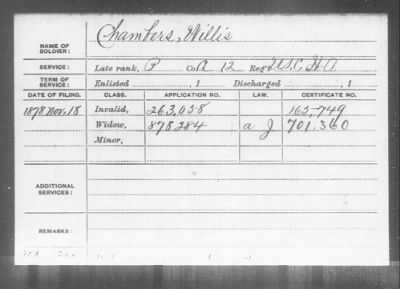 NAME OF SOLDIER: Chambers, Willis
SERVICE: Late rank, P Co. A 12 Reg't U.S.C.H.A.
TERM OF SERVICE: Enlisted , 1 Discharged , 1
DATE OF FILING. CLASS. APPLICATION NO. LAW. CERTIFICATE NO.
1878 Nov. 18 Invalid, 263,058 165,749
Widow, 878284 a J 701.360
Minor,
ADDITIONAL SERVICES:
REMARKS: